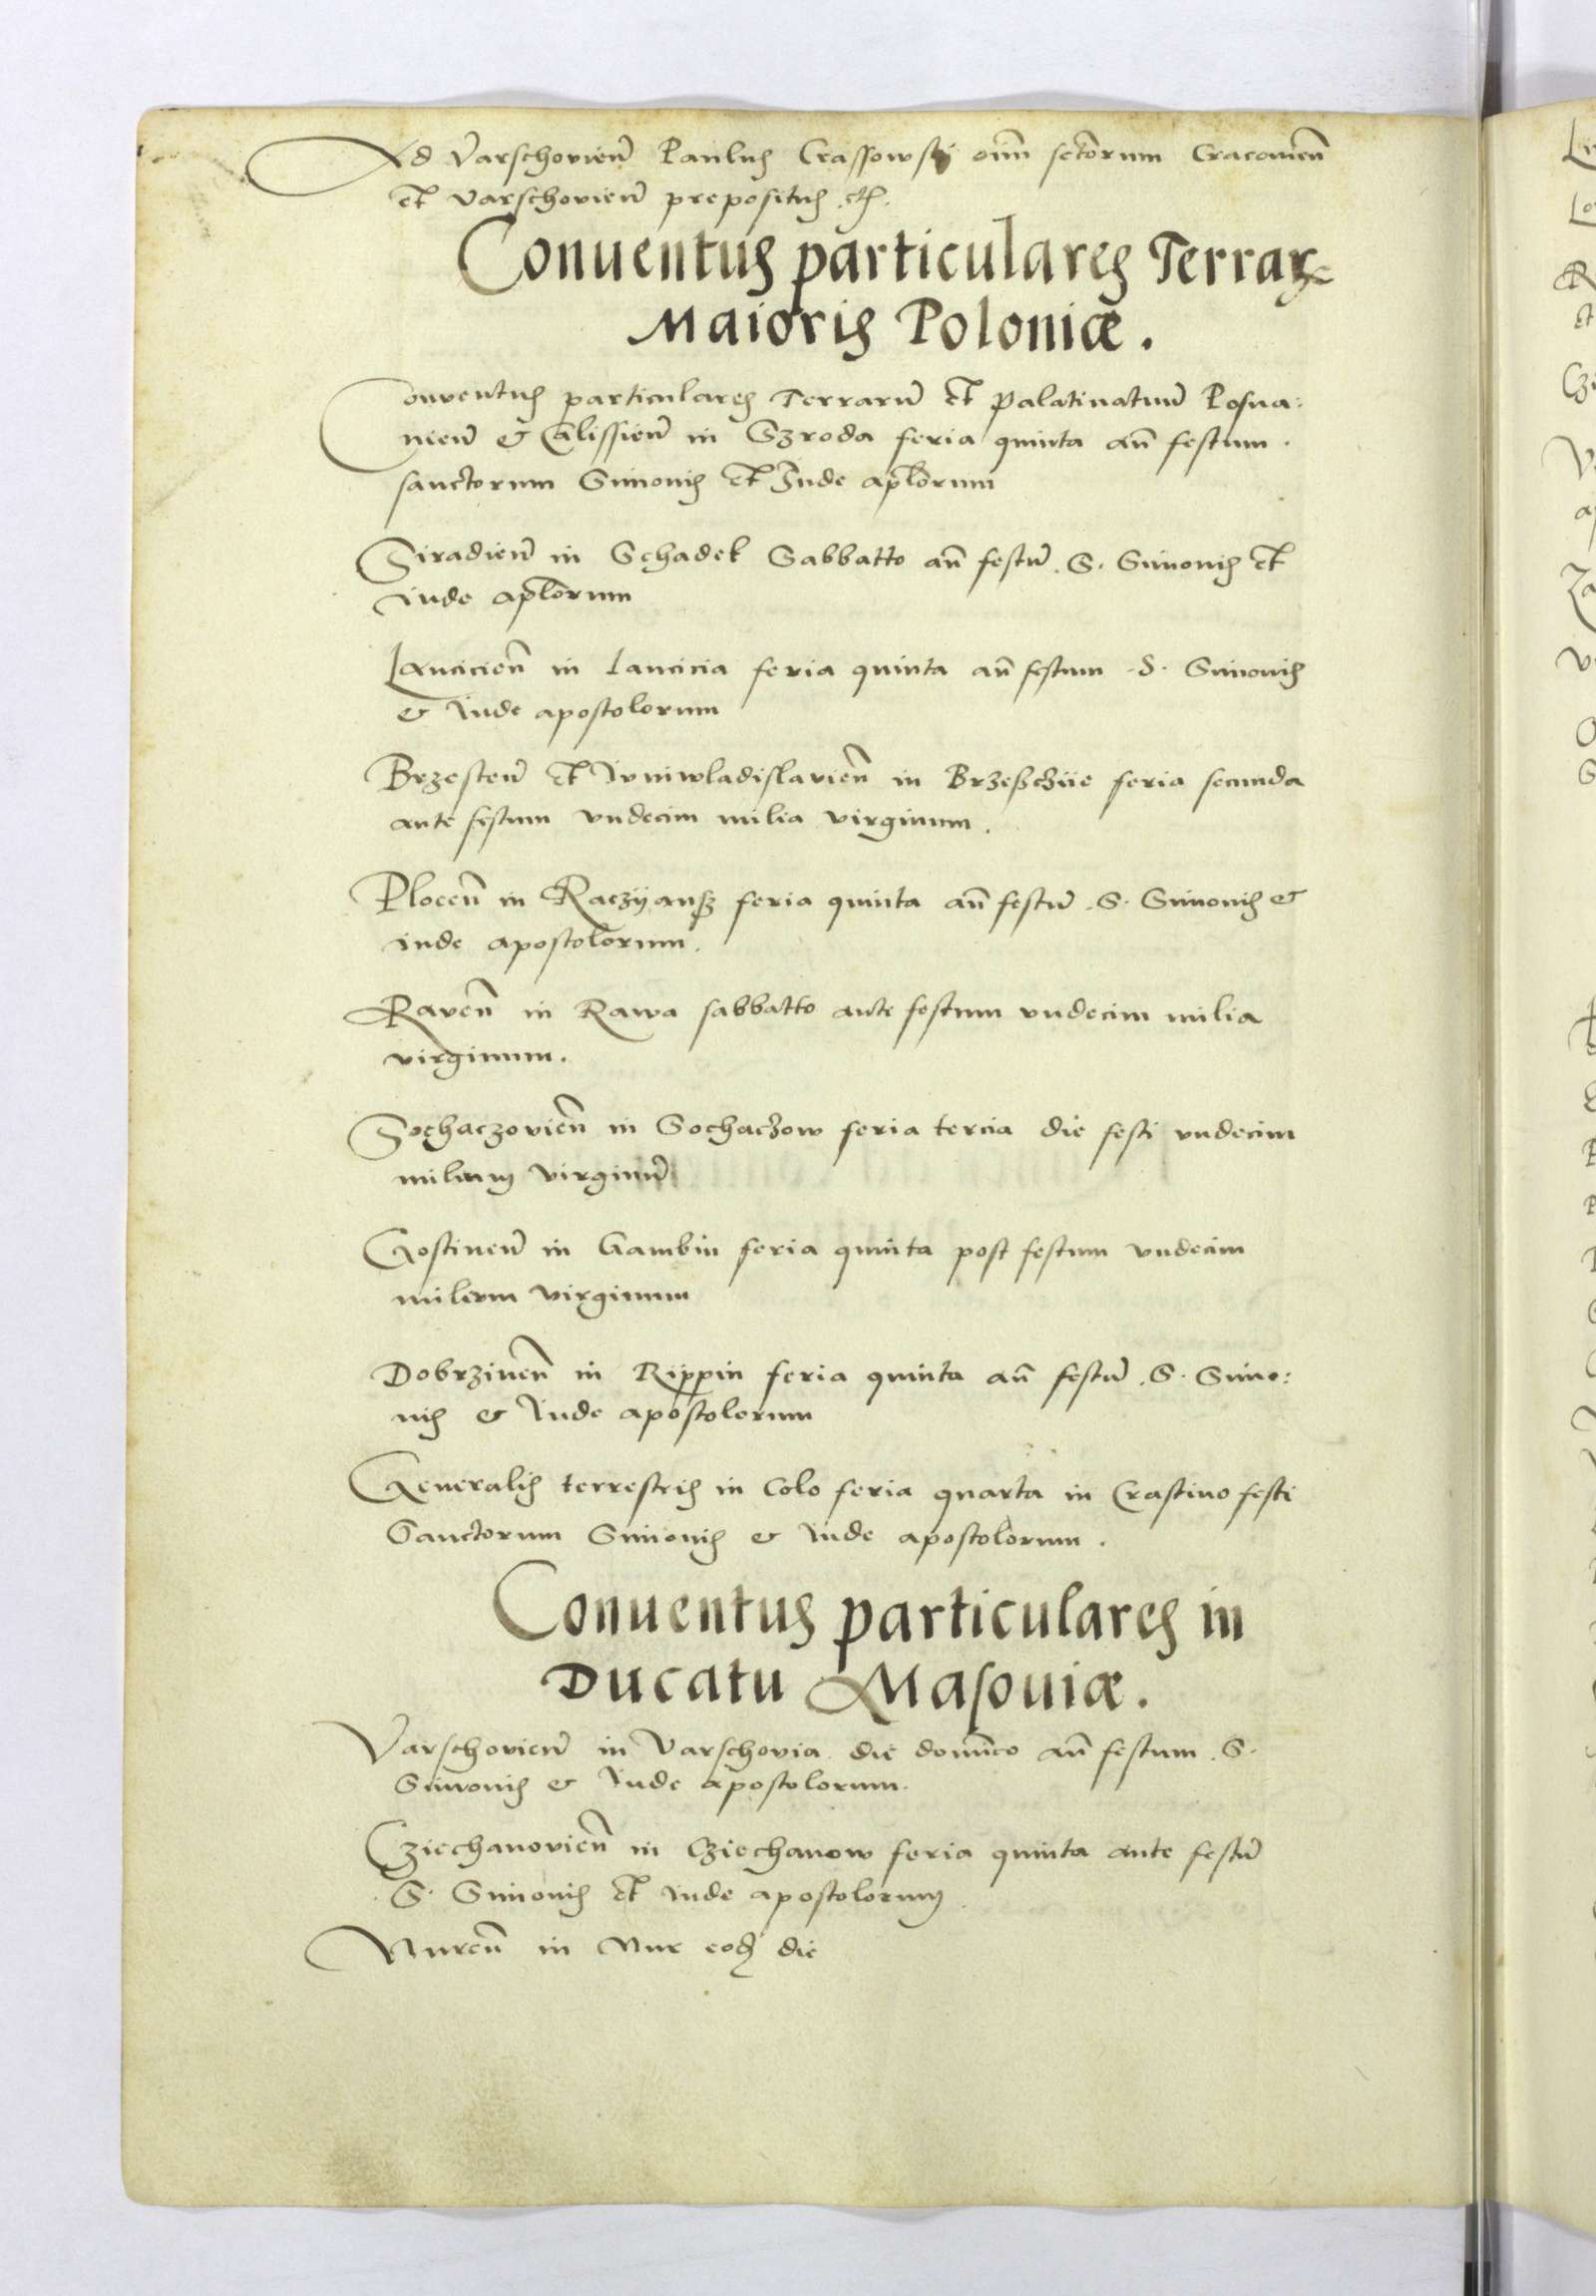 Ad Varschovien̄ Paulus Crassowskj om̄ sctōrum Cracovien̄
et Varschovien̄ prepositus etc̄.
Conuentus particulares Terraꝝ
Maioris Poloniæ.
Conventus particulares Terrarū et Palatinatuū Posna:
nien̄ & Calissien̄ in Szroda feria quinta an̄ festum
sanctorum Simonis et Iude aplōrum
Siradien̄ in Schadek Sabbatto an̄ festū S. Simonis et
Iude aplōrum
Lancicien̄ in Lancicia feria quinta an̄ festum S. Simonis
& Iude apostolorum
Brzesten̄ et Iuniwladislavien̄ in Brzeßcziie feria secunda
ante festum vndecim milia virginum.
Plocen̄ in Raczyansz feria quinta an̄ festū S. Simonis &
Iude apostolorum.
Raven̄ in Rawa sabbatto ante festum vndecim milia
virginum.
Sochaczovien̄ in Sochaczow feria tercia die festi vndecim
milium virginū
Gostinen̄ in Gambin feria quinta post festum vndecim
milium virginum
Dobrzinen̄ in Rippin feria quinta an̄ festū S. Simo:
nis & Iude apostolorum
Generalis terrestris in Colo feria quarta in Crastino festi
Sanctorum Simonis & Iude apostolorum.
Conuentus particulares in
Ducatu Masouiæ.
Varschovien̄ in Varschovia die domīco an̄ festum S.
Simonis & Iude apostolorum.
Cziechanovien̄ in Cziechanow feria quinta ante festū
S. Simonis et Iude apostolorum
Nuren̄ in Nur eod̄ die